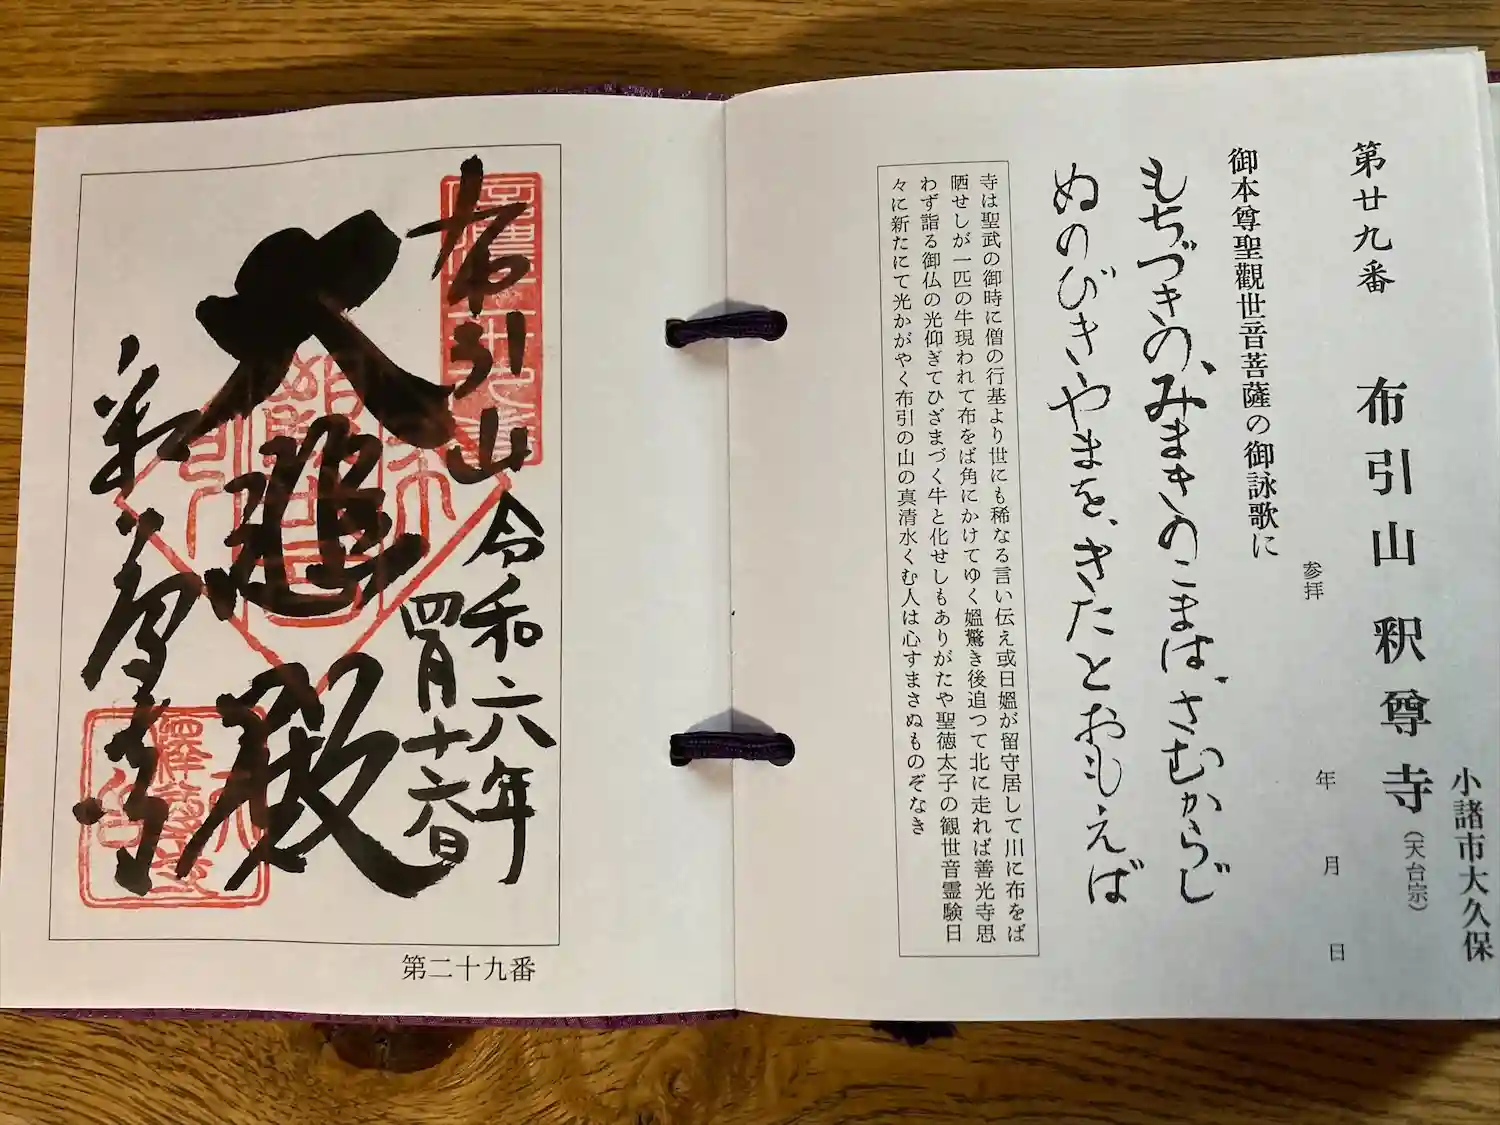 小諸市大久保
第廿九番 布引山 釈尊寺 (天台宗)
参拝 年 月 日
御本尊聖觀世音菩薩の御詠歌に
もちづきの、みまきのこまは、さむからじ
ぬのびきやまを、きたとおもえば
寺は聖武の御時に僧の行基より世にも稀なる言い伝え或日媼が留守居して川に布をば
晒せしが一匹の牛現われて布をば角にかけてゆく媼驚き後追つて北に走れば善光寺思
わず詣る御仏の光仰ぎてひざまづく牛と化せしもありがたや聖徳太子の観世音霊験日
々に新たにて光かがやく布引の山の真清水くむ人は心すまさぬものぞなき
布引山
令和六年
四月十六日
大悲殿
釈尊寺
第二十九番